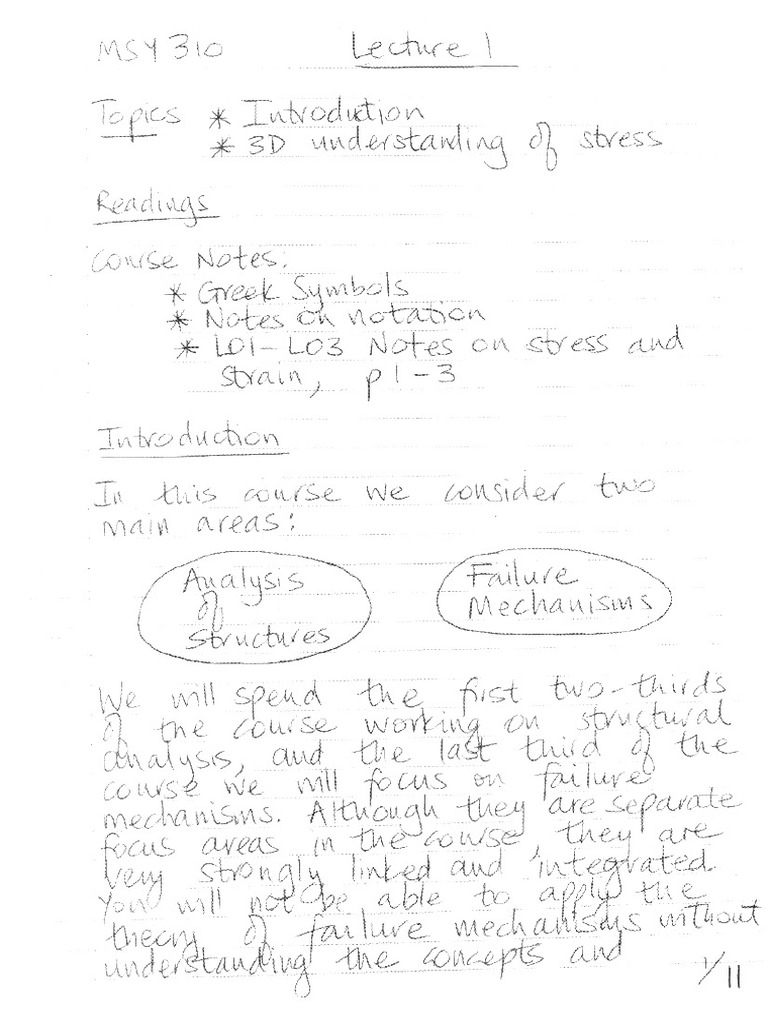 MSY 310 Lecture 1
Topics * Introduction
* 3D understanding of stress
Readings
Course Notes:
* Greek Symbols
* Notes on notation
* L01-L03 Notes on stress and
strain, p1-3
Introduction
In this course we consider two
main areas:
Analysis
of
Structures
Failure
Mechanisms
We will spend the first two-thirds
of the course working on structural
analysis, and the last third of the
course we will focus on failure
mechanisms. Although they are separate
focus areas in the course, they are
very strongly linked and integrated.
You will not be able to apply the
theory of failure mechanisms without
understanding the concepts and
1/11